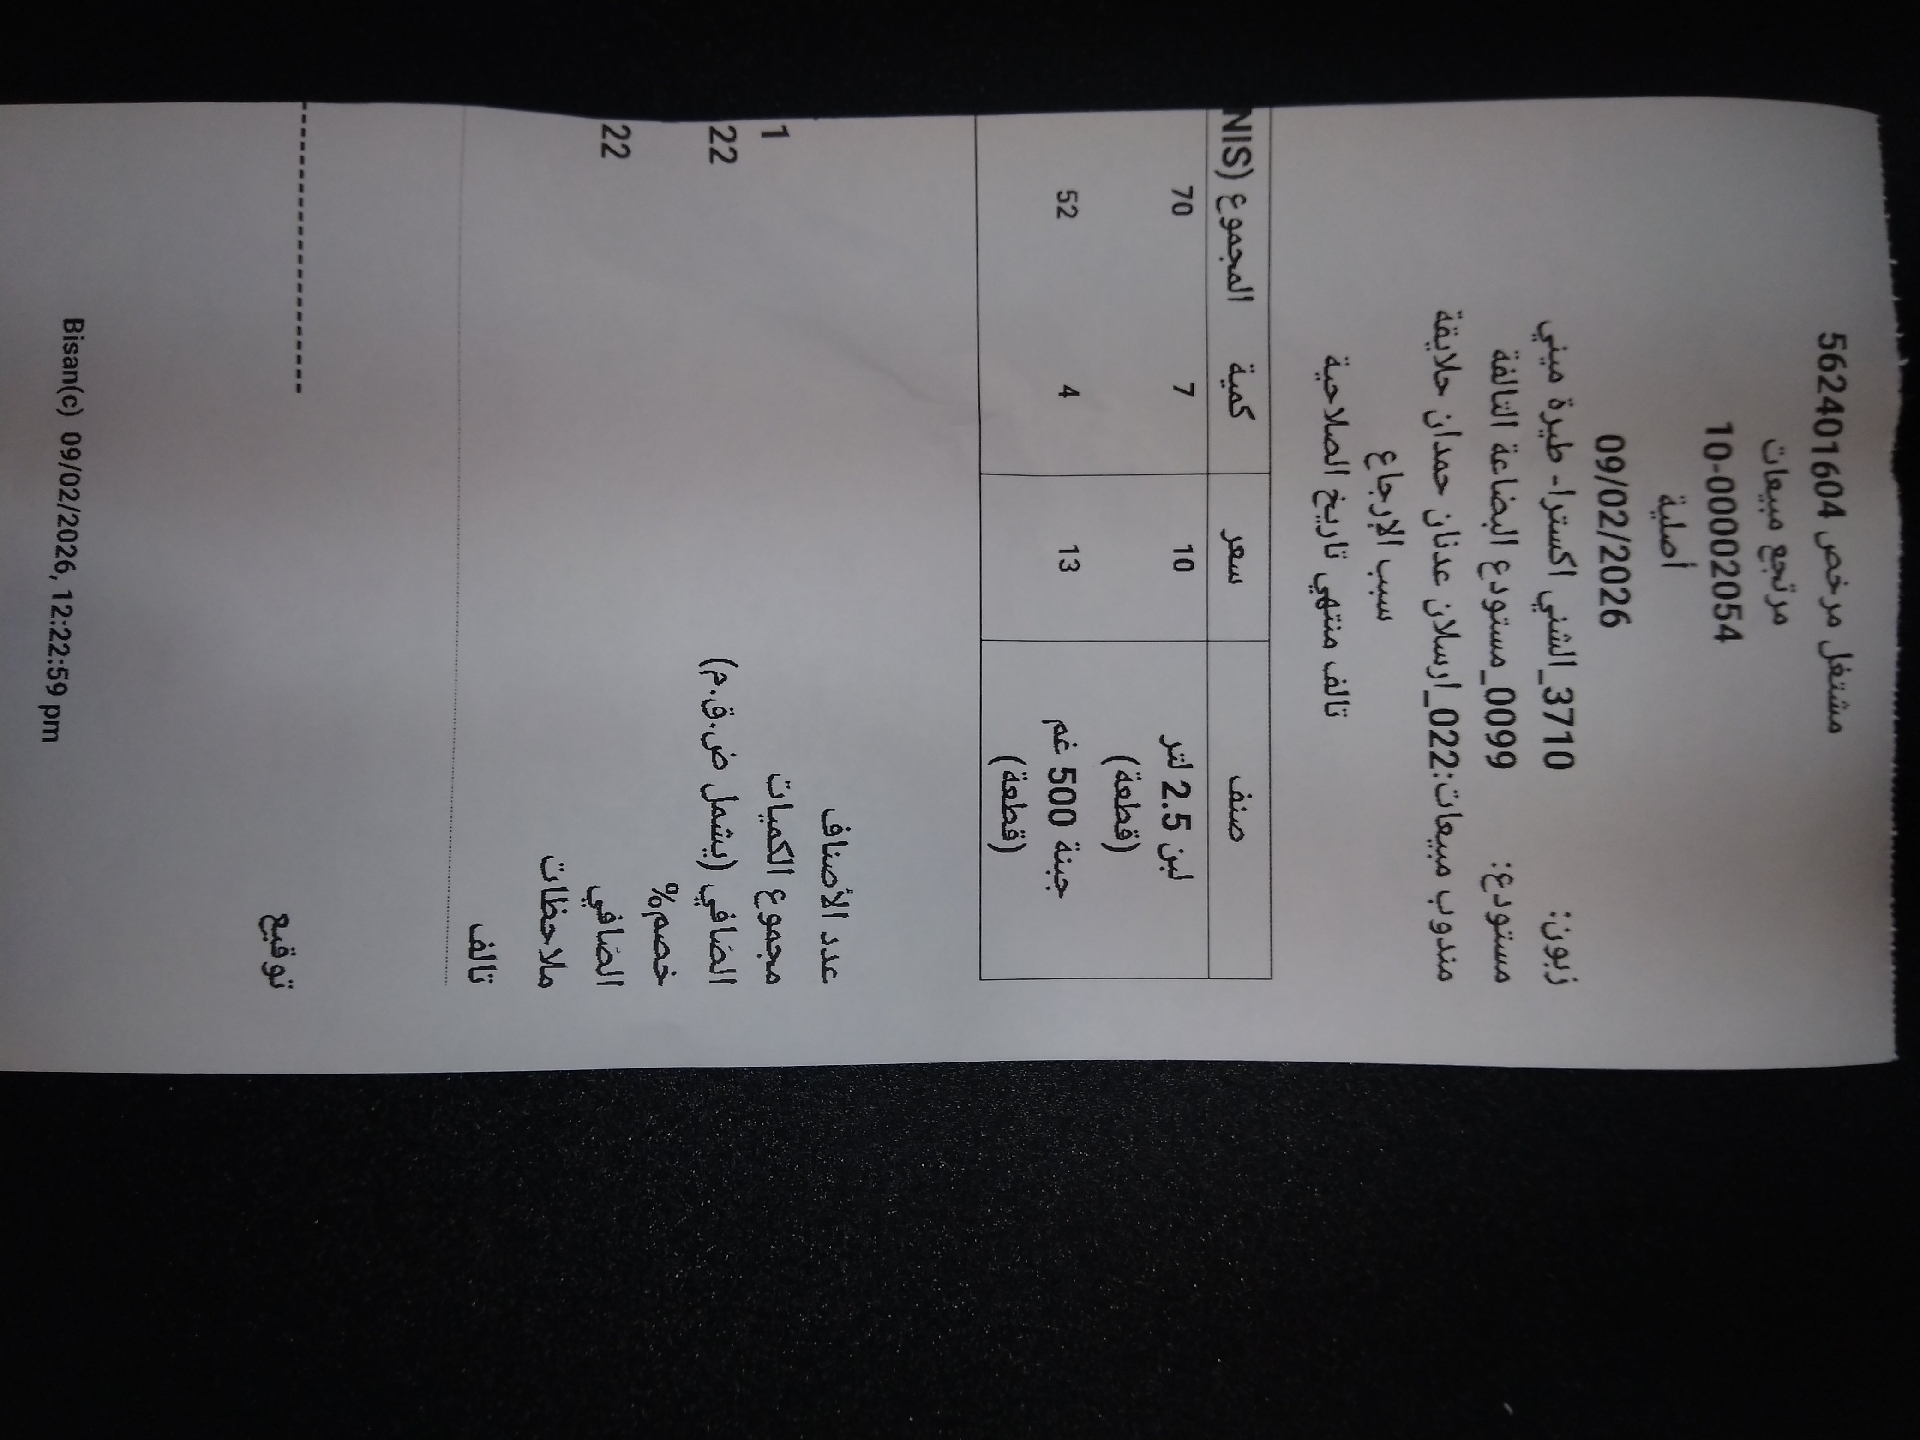 مشتغل مرخص 562401604
مرتجع مبيعات
10-00002054
أصلية
09/02/2026
زبون: 3710_الشني اكسترا- طيرة ميني
مستودع: 0099_مستودع البضاعة التالفة
مندوب مبيعات:022_ارسلان عدنان حمدان حلايقة
سبب الإرجاع
تالف منتهي تاريخ الصلاحية
صنف سعر كمية المجموع (NIS
لبن 2.5 لتر 10 7 70
(قطعة)
جبنة 500 غم 13 4 52
(قطعة)
عدد الأصناف
مجموع الكميات 1
الصافي (يشمل ض.ق.م) 22
خصم%
الصافي 22
ملاحظات
تالف
توقيع
Bisan(c) 09/02/2026, 12:22:59 pm